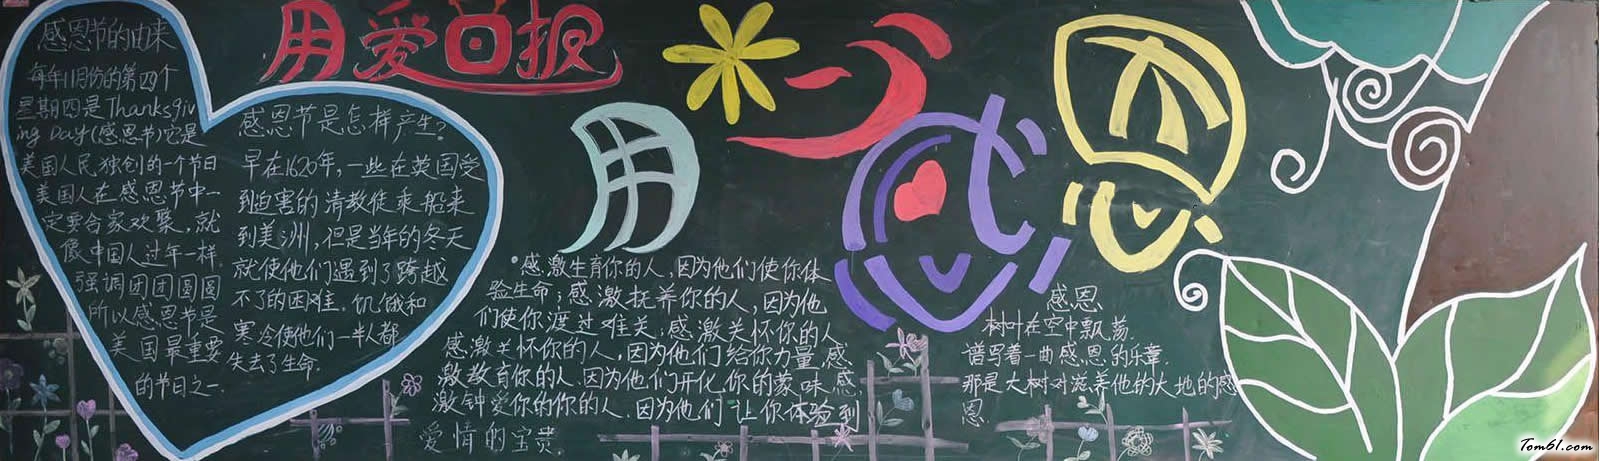 用爱回报
用心感恩
感恩节的由来
每年11月份的第四个
星期四是Thanksgiv
ing Day(感恩节)它是
美国人民独创的一个节日
美国人在感恩节中一
定要合家欢聚,就
像中国人过年一样.
强调团团圆圆
所以感恩节是
美国最重要
的节日之一.
感恩节是怎样产生?
早在1620年,一些在英国受
到迫害的清教徒乘船来
到美洲,但是当年的冬天
就使他们遇到了跨越
不了的困难.饥饿和
寒冷使他们一半人都
失去了生命.
感激生育你的人,因为他们使你体
验生命;感激抚养你的人,因为他
们使你渡过难关;感激关怀你的人
感激关怀你的人,因为他们给你力量,感
激教育你的人.因为他们开化你的蒙昧.感
激钟爱你的你的人.因为他们让你体验到
爱情的宝贵.
感恩
树叶在空中飘荡.
谱写着一曲感恩的乐章.
那是大树对滋养他的大地的感
恩.
Tom61.com